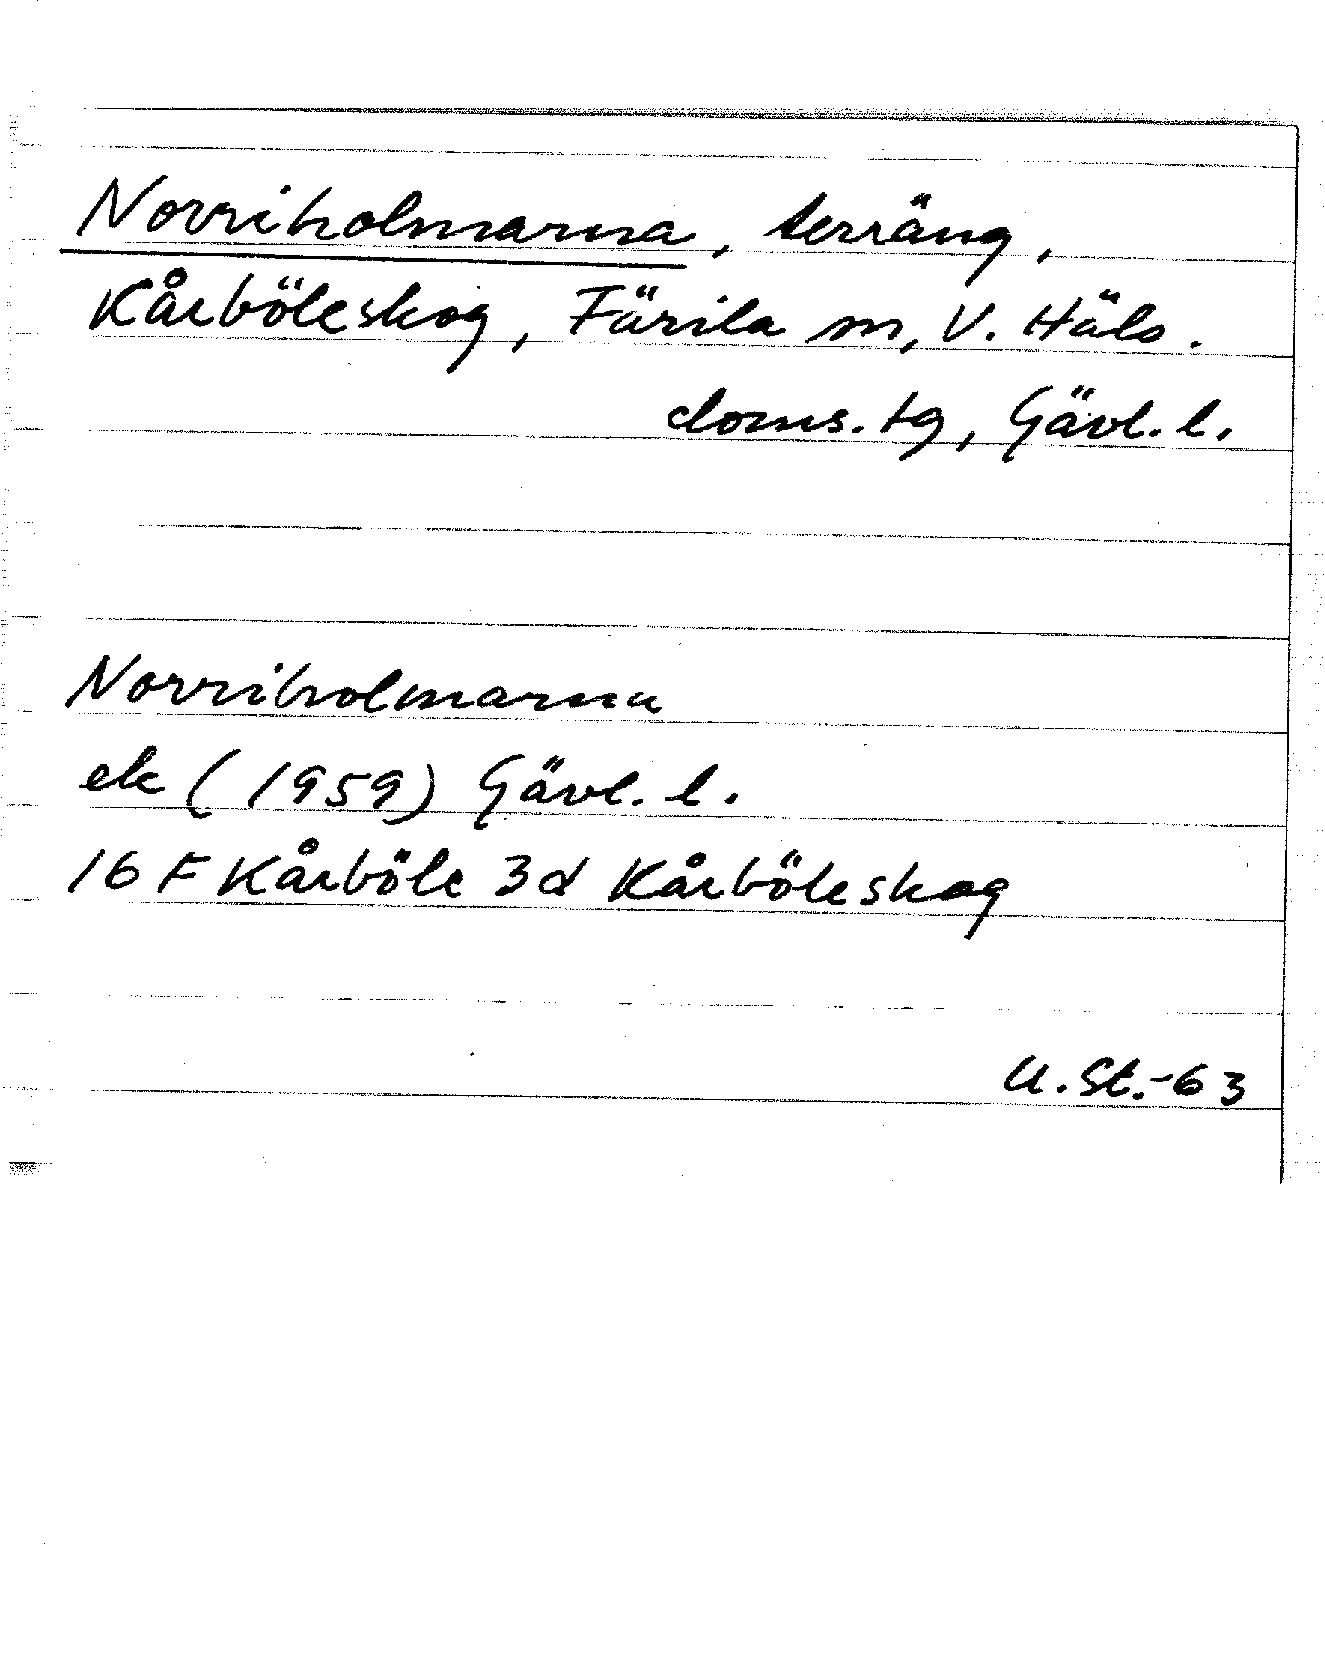 Norriholmarna, terräng,
Kårböleskog, Färila sn, V. Häls.
doms. tg, Gävl. l.
Norriholmarna
ek (1959) Gävl. l.
16 F Kårböle 3d Kårböleskog
U. St. -63